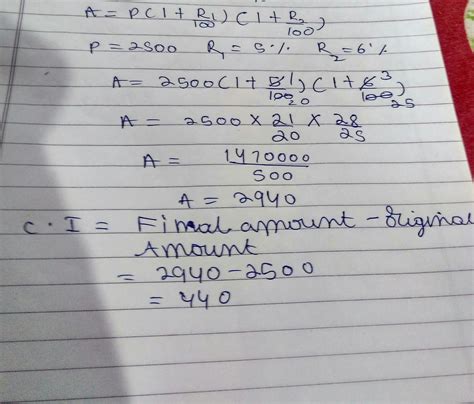 A = P(1 + R₁/100) (1 + R₂/100)
P = 2500 R₁ = 5% R₂ = 6%
A = 2500 (1 + 5 1/100 20) (1 + 6 3/100 25)
A = 2500 × 21/20 × 28/25
A = 1470000/500
A = 2940
C.I = Final amount - Original
Amount
= 2940 - 2500
= 440